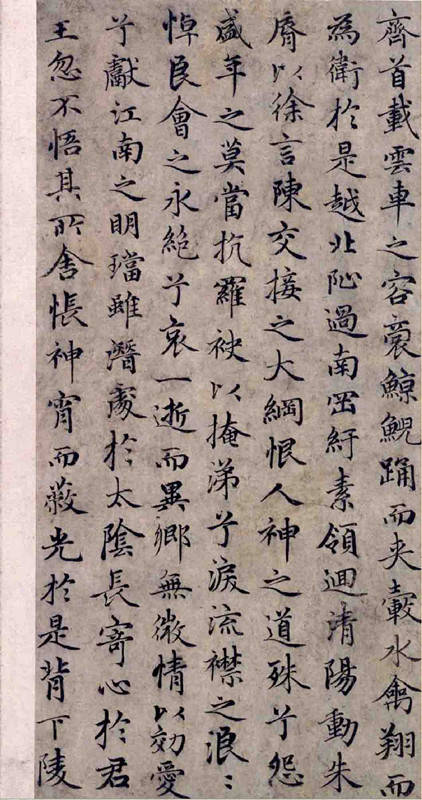 齊首載雲車之容裔鯨鯢踊而夾轂水禽翔而
為衛於是越北沚過南岡紆素領迴清陽動朱
脣以徐言陳交接之大綱恨人神之道殊兮怨
盛年之莫當抗羅袂以掩涕兮淚流襟之浪〻
悼良會之永絕兮哀一逝而異鄉無微情以効愛
兮獻江南之明璫雖潛處於太陰長寄心於君
王忽不悟其所舍悵神宵而蔽光於是背下陵